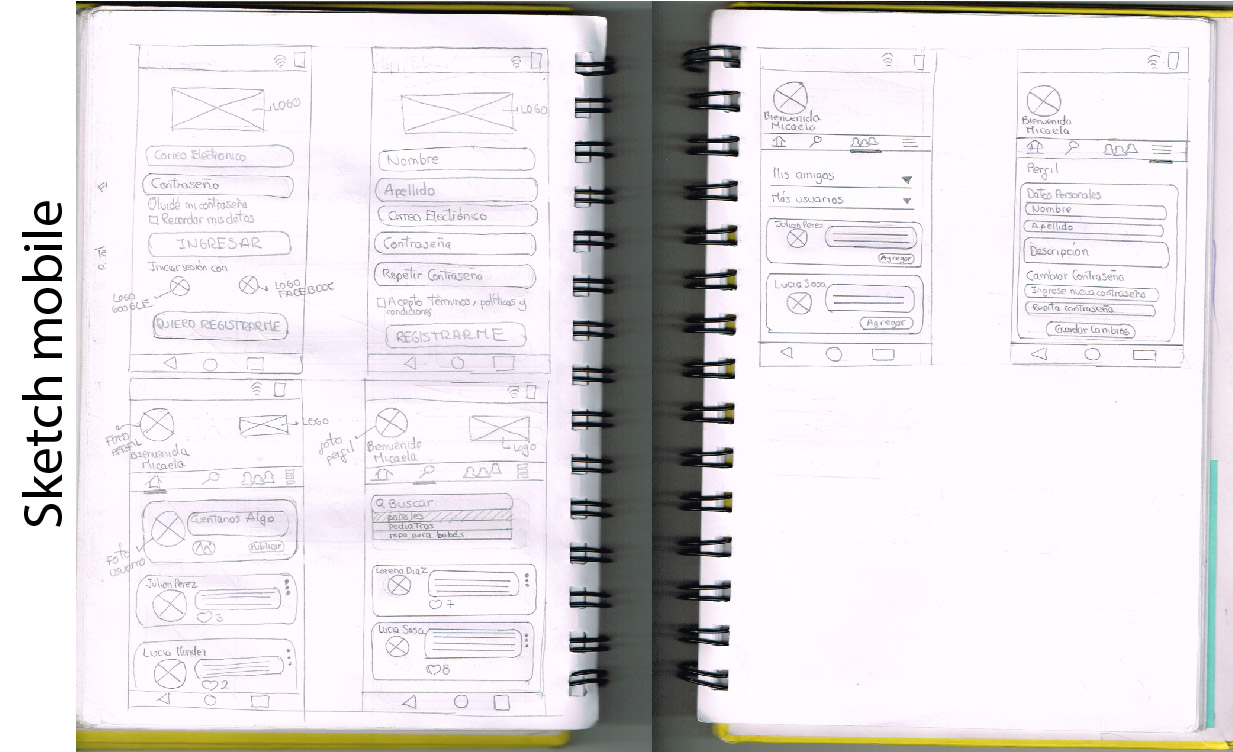 Sketch mobile
LOGO
Correo Electronico
Contraseña
Olvidé mi contraseña
Recordar mis datos
INGRESAR
Iniciar sesión con
LOGO
GOOGLE
LOGO
FACEBOOK
QUIERO REGISTRARME
LOGO
Nombre
Apellido
Correo Electrónico
Contraseña
Repetir Contraseña
Acepto términos, políticas y
condiciones
REGISTRARME
FOTO
PERFIL
LOGO
Bienvenida
Micaela
Cuentanos Algo
Publicar
Foto
usuario
Julian Perez
6
Lucia
2
foto
perfil
Logo
Bienvenida
Micaela
Buscar
pañales
pediatras
ropa para bebés
Lorena Diaz
7
Lucia Sosa
8
Bienvenida
Micaela
Mis amigos
Más usuarios
Julian Perez
Agregar
Lucia Sosa
Agregar
Bienvenida
Micaela
Perfil
Datos Personales
Nombre
Apellido
Descripción
Cambiar Contraseña
Ingrese nueva contraseña
Repita contraseña
Guardar Cambios